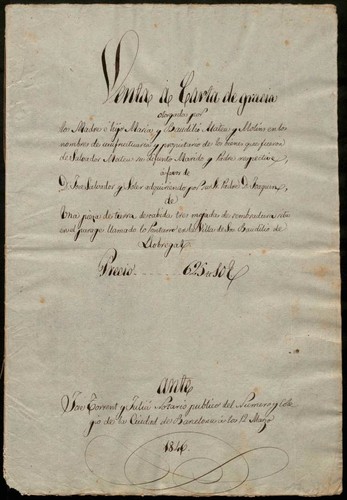 Venta á Carta de gracia
otorgada por
los Madre é hijo Maria, y Baudilio Mateu y Molins en los
nombres de usufructuaria y propietario de los bienes que fueron
de Salvador Mateu su difunto Marido y Padre respective
á favor de
D. José Salvador y Soler adquiriendo por su Sr. Padre D. Joaquin
de
Una pieza de tierra de cabida tres mojadas de sembradura sita
en el parage llamado lo en la Villa de Sn. Baudilio de
Llobregat
Precio
Ante
José Torrent y Juliá Notario publico del Numero y Cole
gio de la Ciudad de Barcelona á los 12 Marzo
1846.